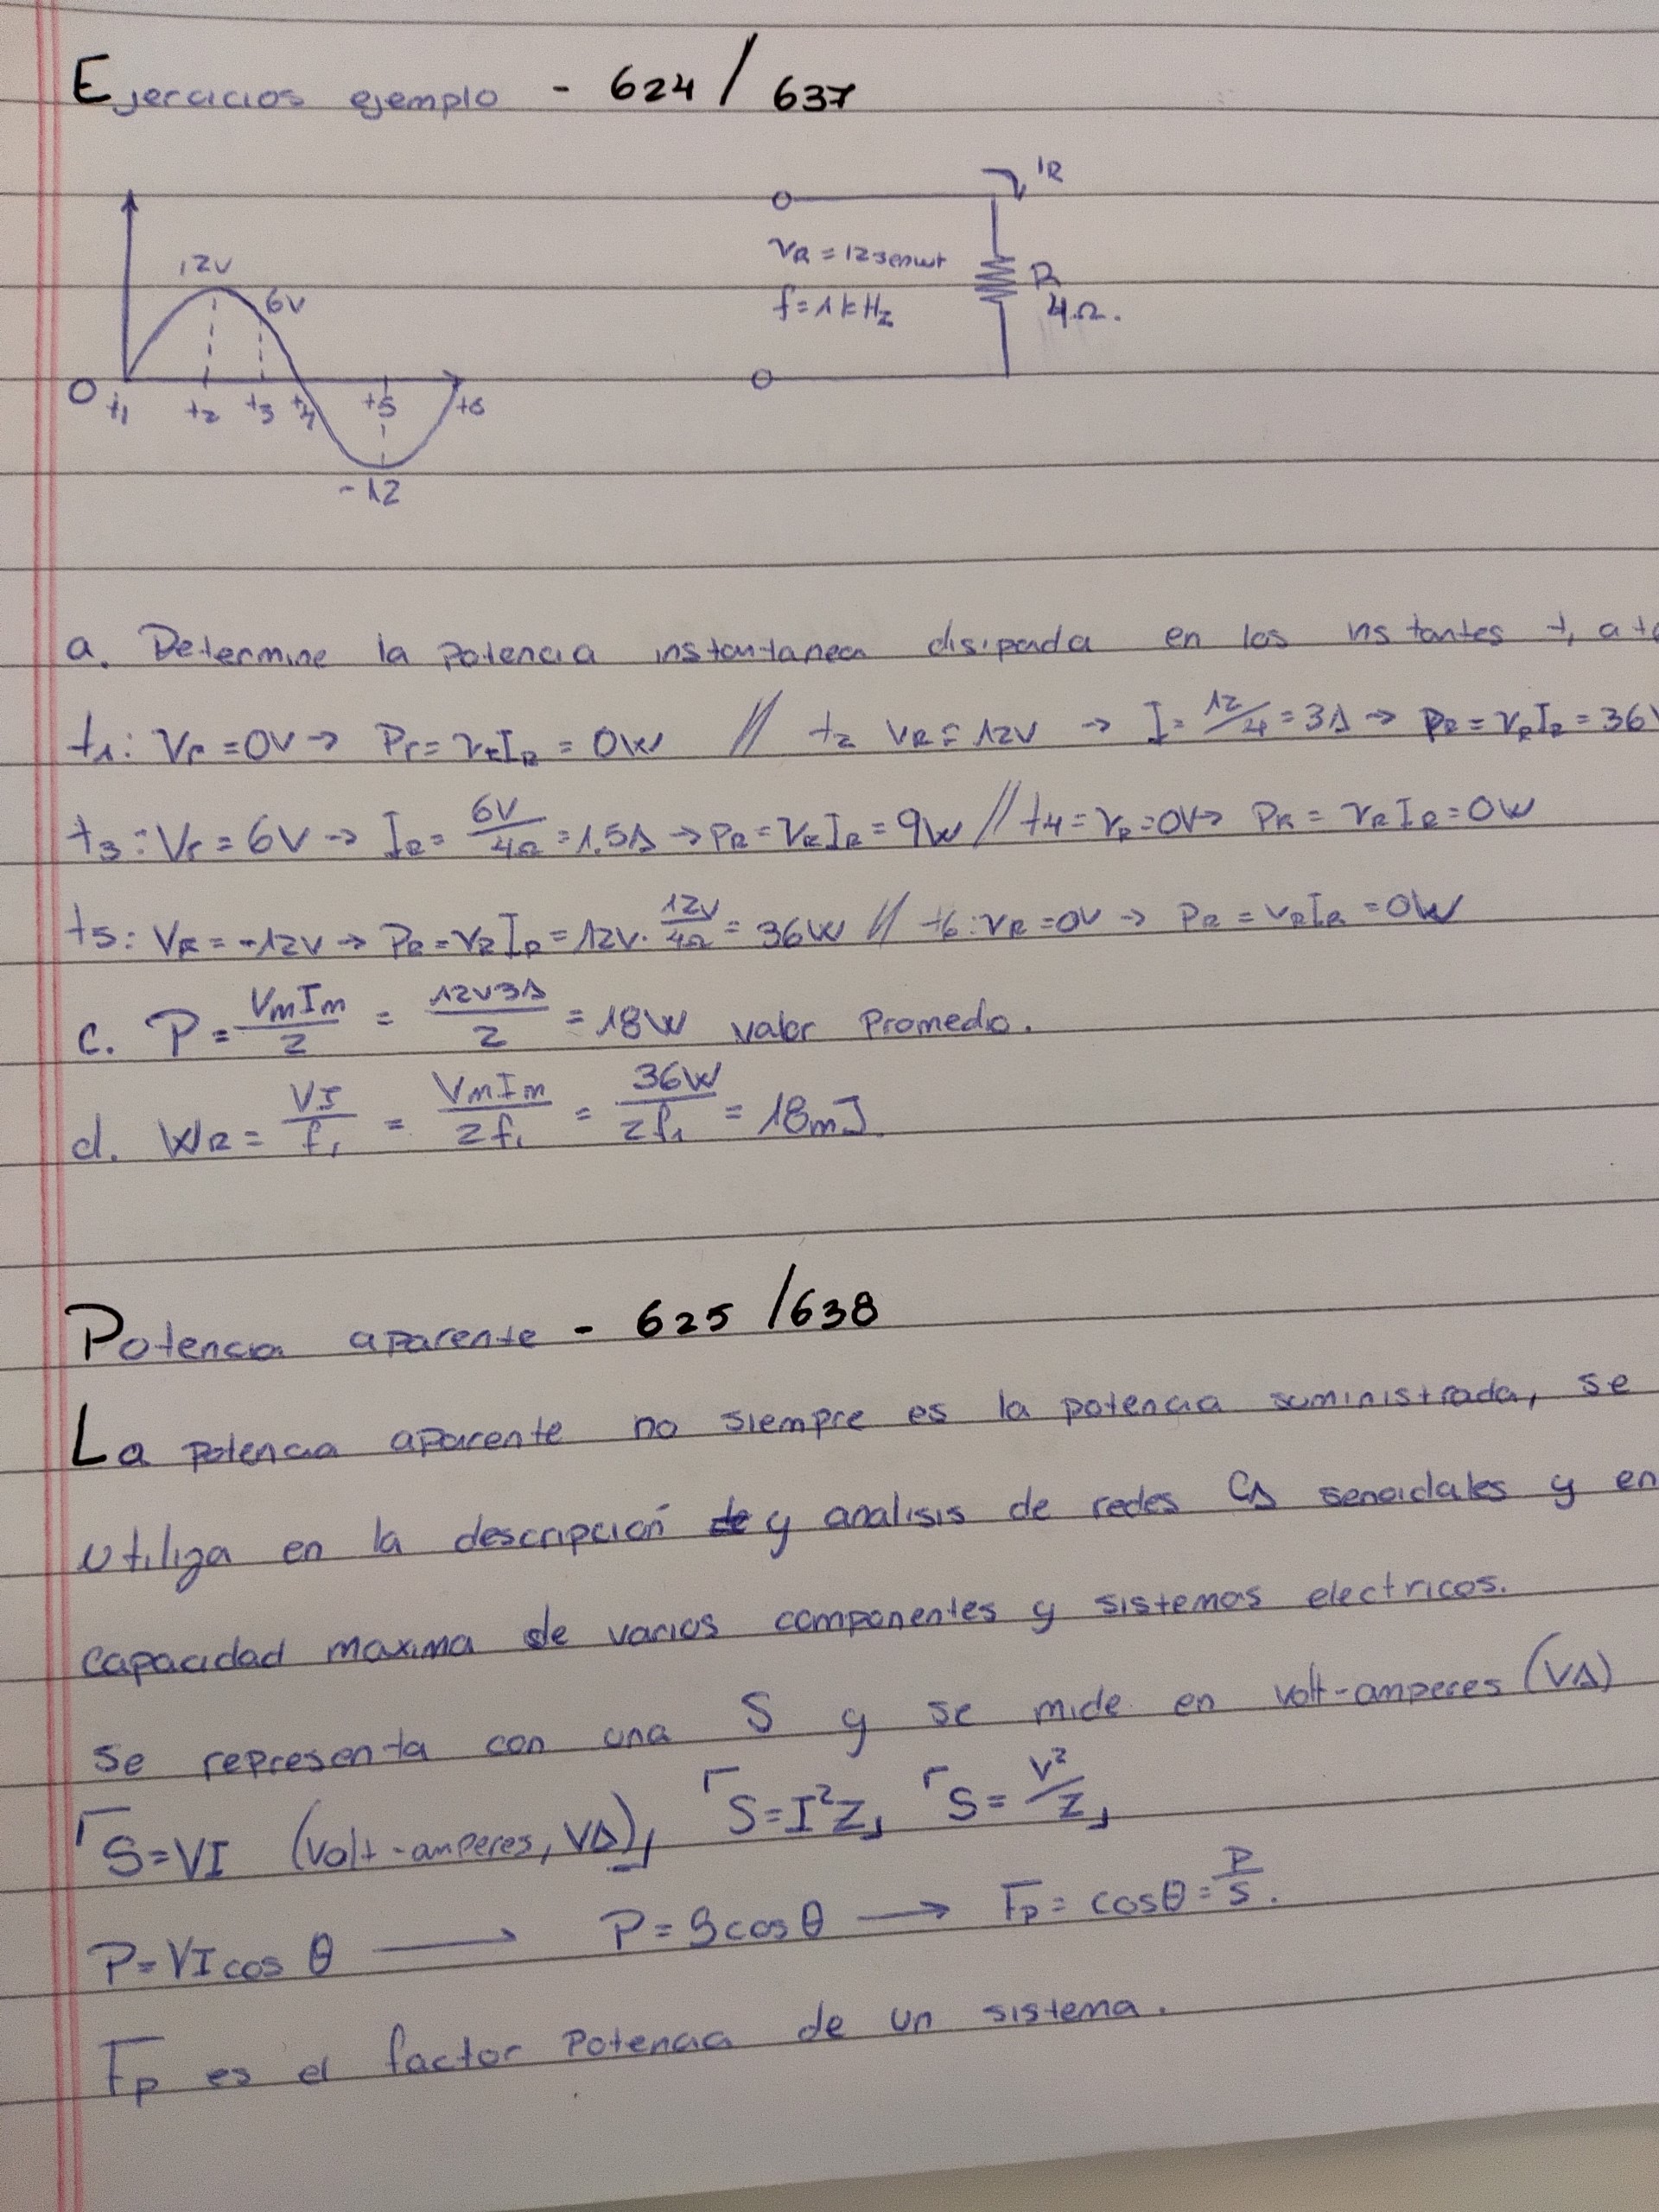 Ejercicios ejemplo - 624 / 637
iR
12V
6V
vR = 12 senwt
f = 1 kHz
R
4Ω.
O t1 t2 t3 t4 t5 t6
-12
a. Determine la potencia instantanea disipada en los instantes t1 a t6
t1: Vr = 0V → Pr = vRIR = 0W // t2 VR = 12V → I = 12/4 = 3A → PR = vRIR = 36W
t3: Vr = 6V → IR = 6V/4Ω = 1.5A → PR = VRIR = 9W // t4 = vR = 0V → PR = vRIR = 0W
t5: VR = -12V → PR = VRIR = 12V · 12V/4Ω = 36W // t6: vR = 0V → PR = vRIR = 0W
c. P = VmIm/2 = 12V3A/2 = 18W valor Promedio.
d. WR = VI/f1 = VmIm/2f1 = 36W/2f1 = 18mJ
Potencia aparente - 625 / 638
La potencia aparente no siempre es la potencia suministrada, se
utiliza en la descripción de y analisis de redes CA senoidales y en
capacidad maxima de varios componentes y sistemas electricos.
Se representa con una S y se mide en volt-amperes (VA)
S = VI (volt-amperes, VA), S = I²Z, S = V²/Z
P = VI cos θ → P = S cos θ → Fp = cosθ = P/S.
Fp es el factor Potencia de un sistema.